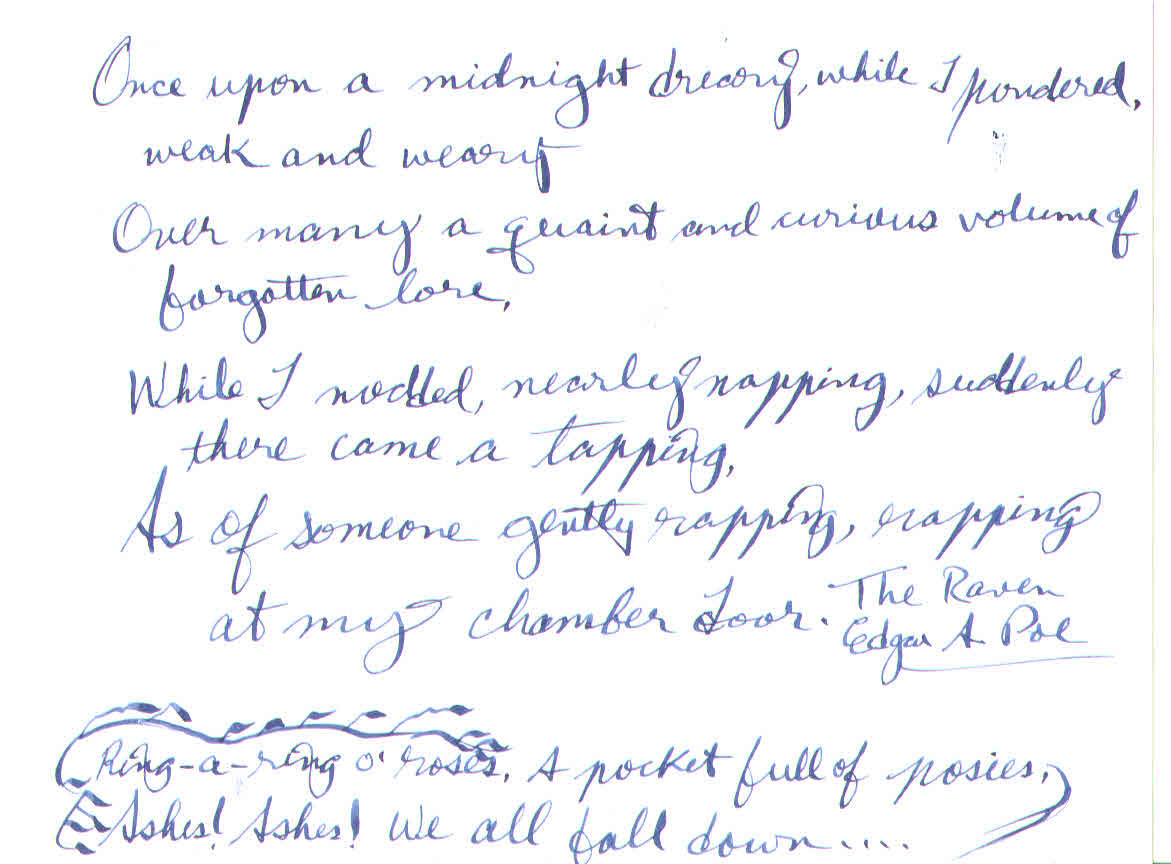 Once upon a midnight dreary, while I pondered,
weak and weary
Over many a quaint and curious volume of
forgotten lore,
While I nodded, nearly napping, suddenly
there came a tapping,
As of someone gently rapping, rapping
at my chamber door.
The Raven
Edgar A Poe
Ring-a-ring o' roses, A pocket full of posies,
Ashes! Ashes! We all fall down....